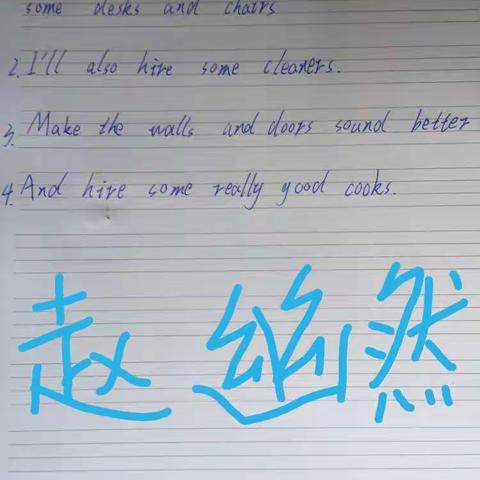 some desks and chairs
2. I'll also hire some cleaners.
3. Make the walls and doors sound better
4. And hire some really good cooks.
赵幽然